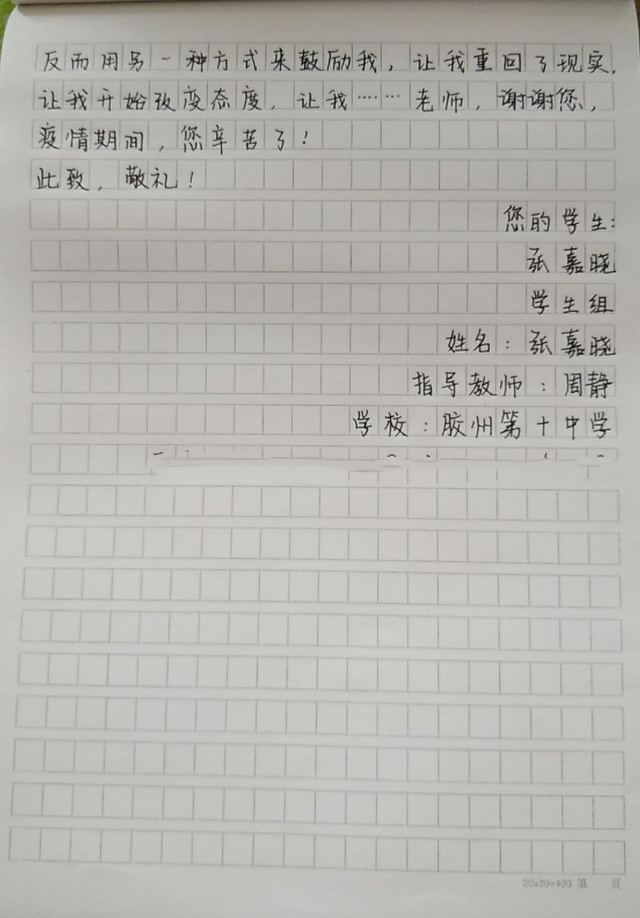 反而用另一种方式来鼓励我，让我重回了现实，
让我开始改变态度，让我……老师，谢谢您，
疫情期间，您辛苦了！
此致，敬礼！
您的学生：
张嘉晓
学生组
姓名：张嘉晓
指导教师：周静
学校：胶州第十中学
20x20=400 第 页